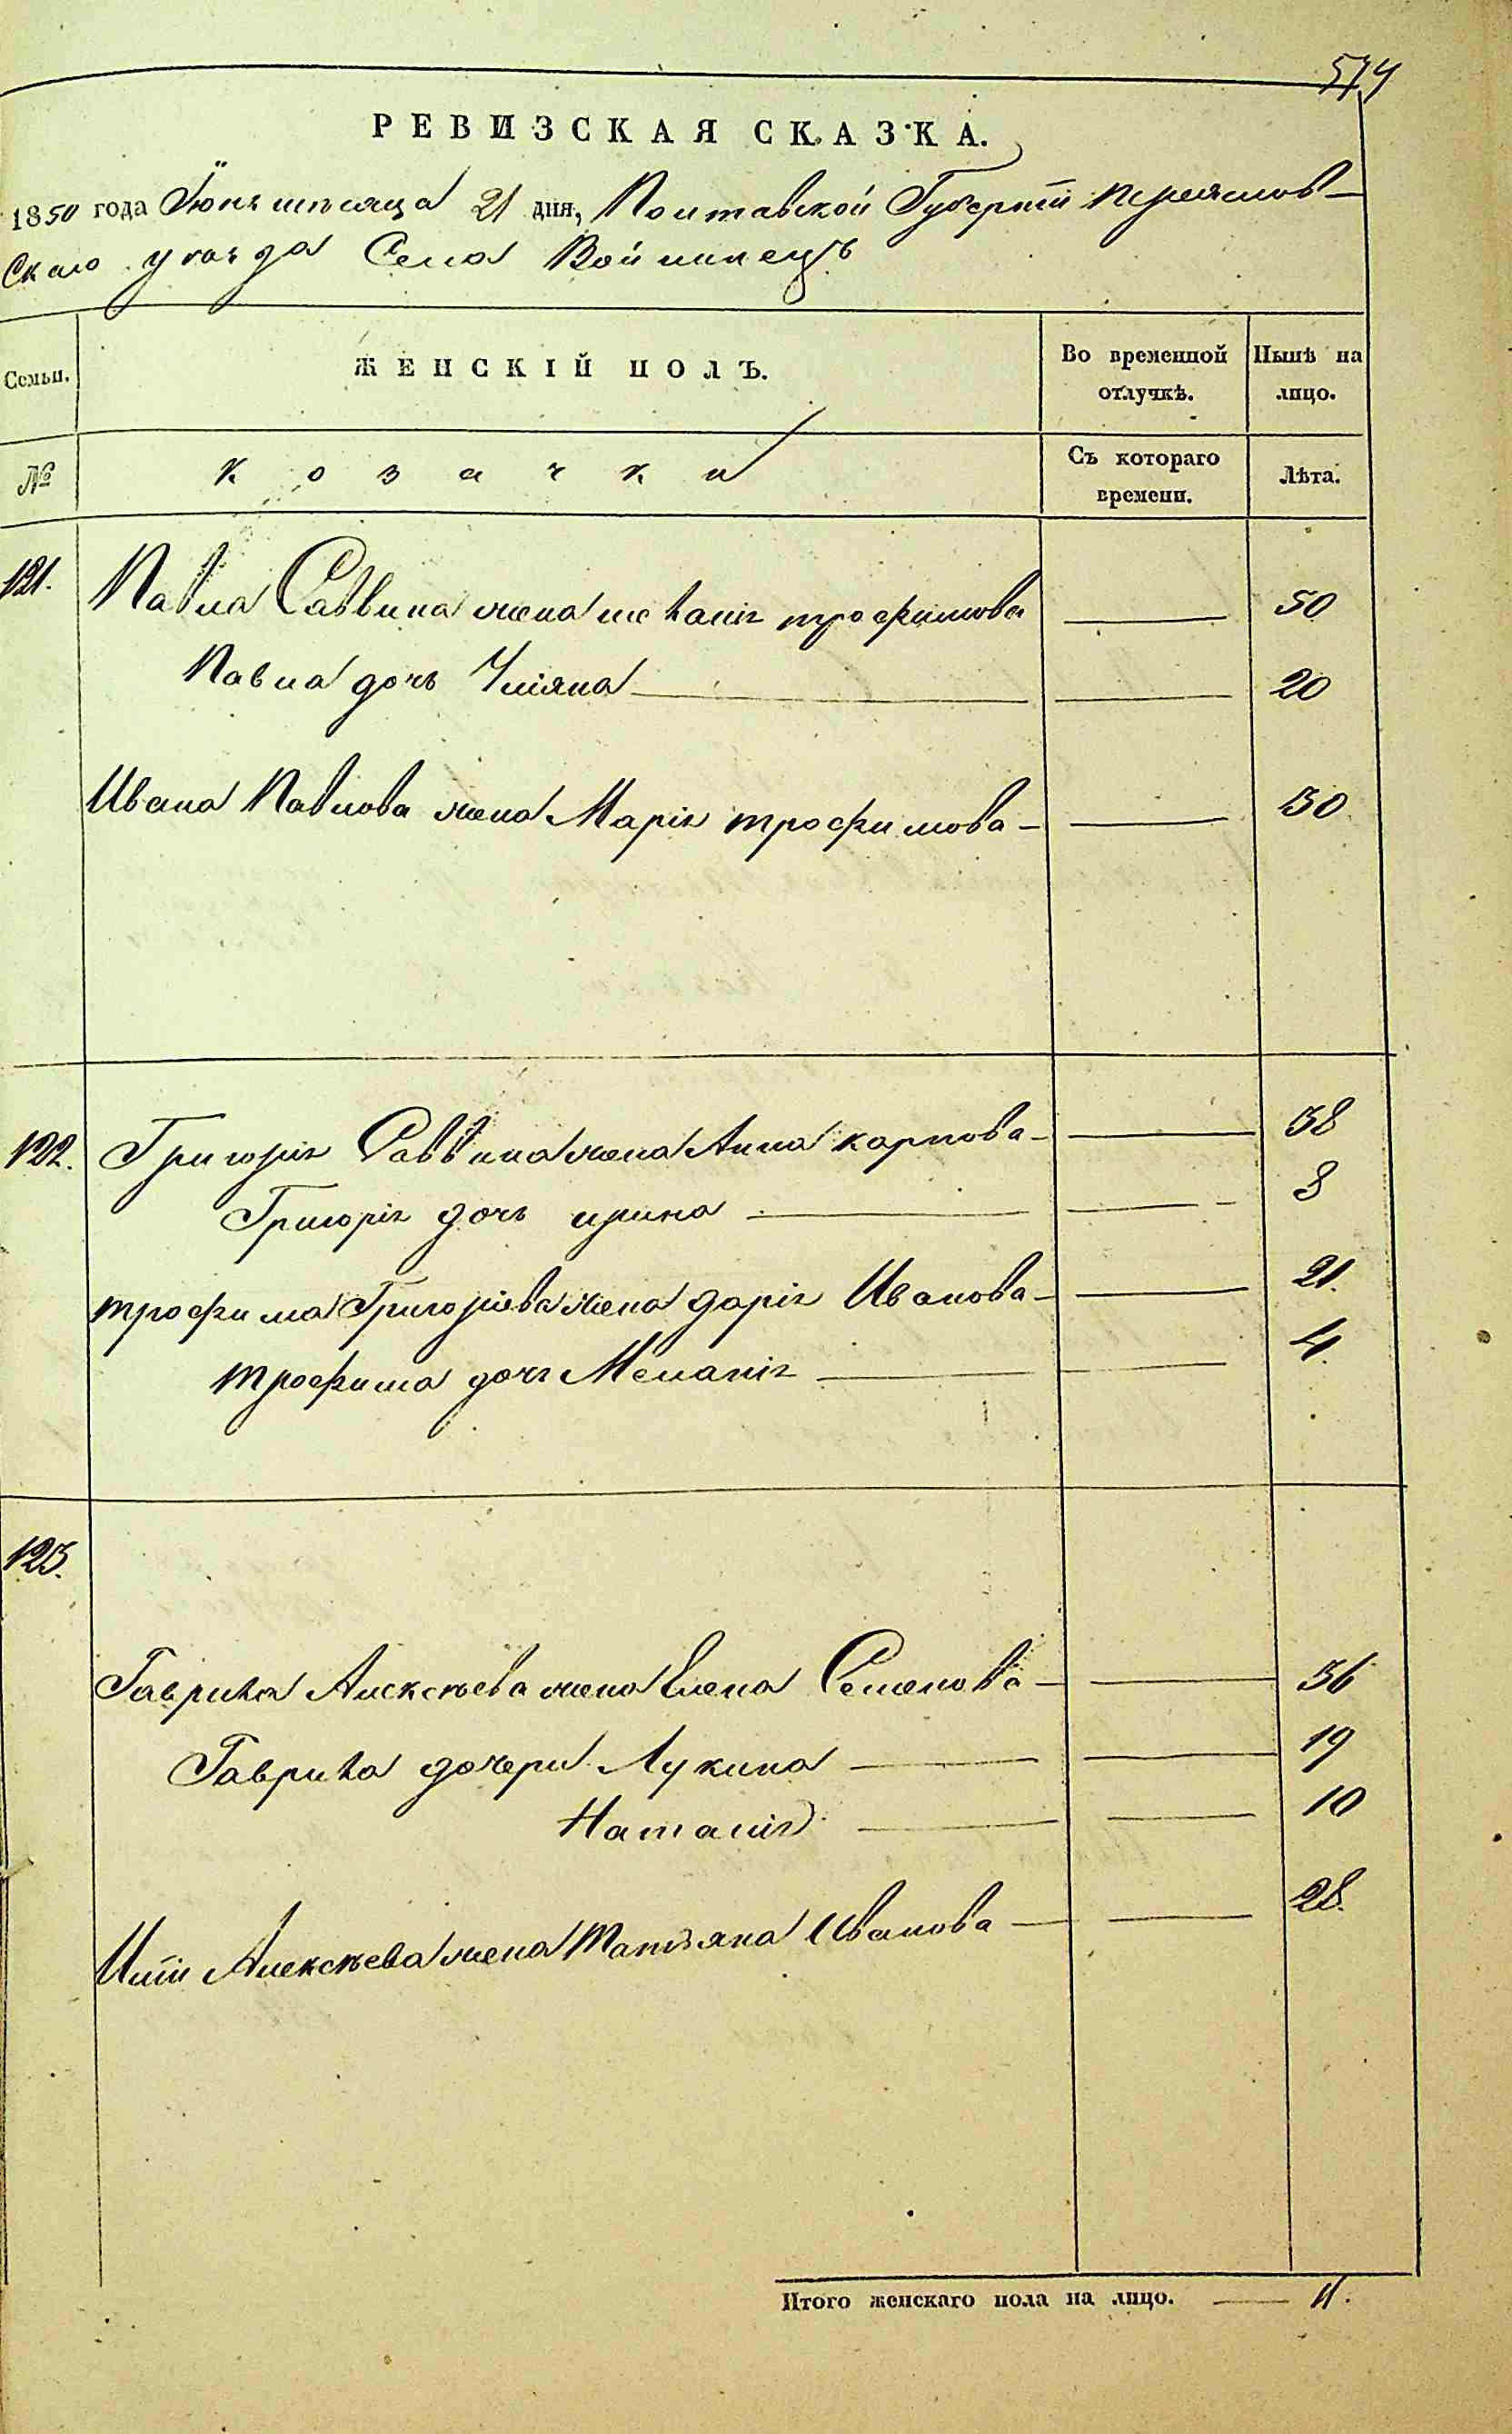 574
РЕВИЗСКАЯ СКАЗКА.
1850 года Іюня мѣсяца 21 дня, Полтавской Губерніи Переяслов-
скаго уѣзда Села Войтинецъ
Семьи.
ЖЕНСКІЙ ПОЛЪ.
Во временной отлучкѣ.
Нынѣ на лицо.
№
Козачки
Съ котораго времени.
Лѣта.
121. Павла Саввина жена трофимова — 50
Павла дочь Уліяна — 20
Ивана Павлова жена Марія трофимова — 30
122. Григорія Саввина жена Анна карпова — 38
Григорія дочь ирина — 8
трофима Григоріева жена дарія Иванова — 21.
трофима дочь Меланія — 4.
123.
Гаврила Алексѣева жена Елена Семенова — 36
Гаврила дочери Лукина — 19
Наталія — 10
Иліи Алексѣева жена Татіяна Иванова — 28.
Итого женскаго пола на лицо. — 11.